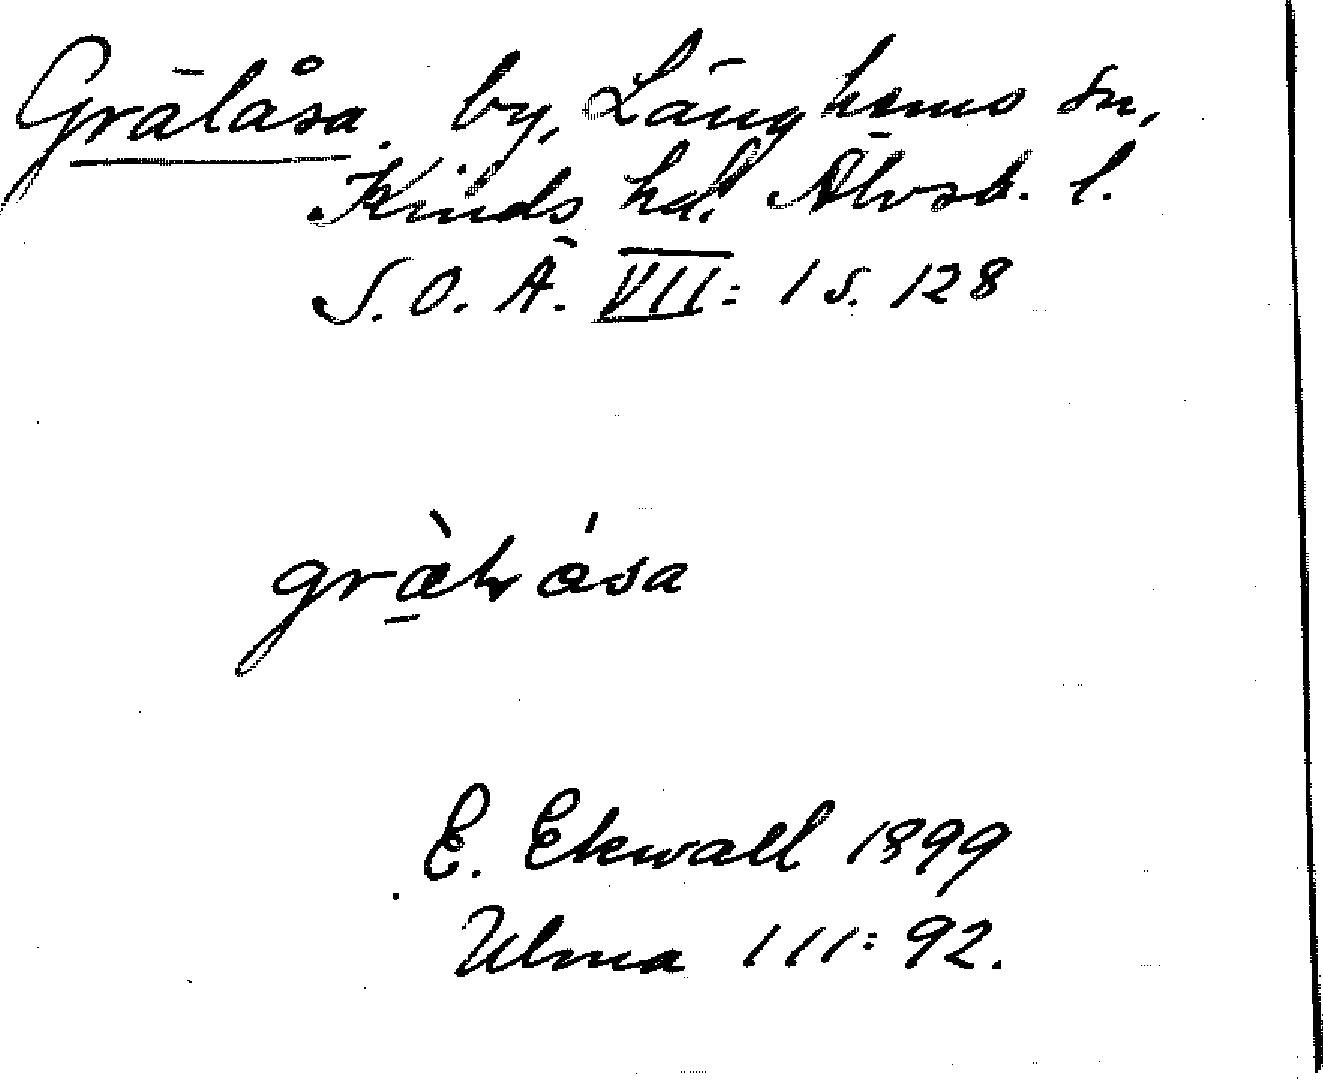 Grälåsa. by, Länghems sn,
Kinds hd. Älvsb. l.
S. O. Ä. VII: 1 s. 128
E. Ekwall 1899
Ulma 111: 92.